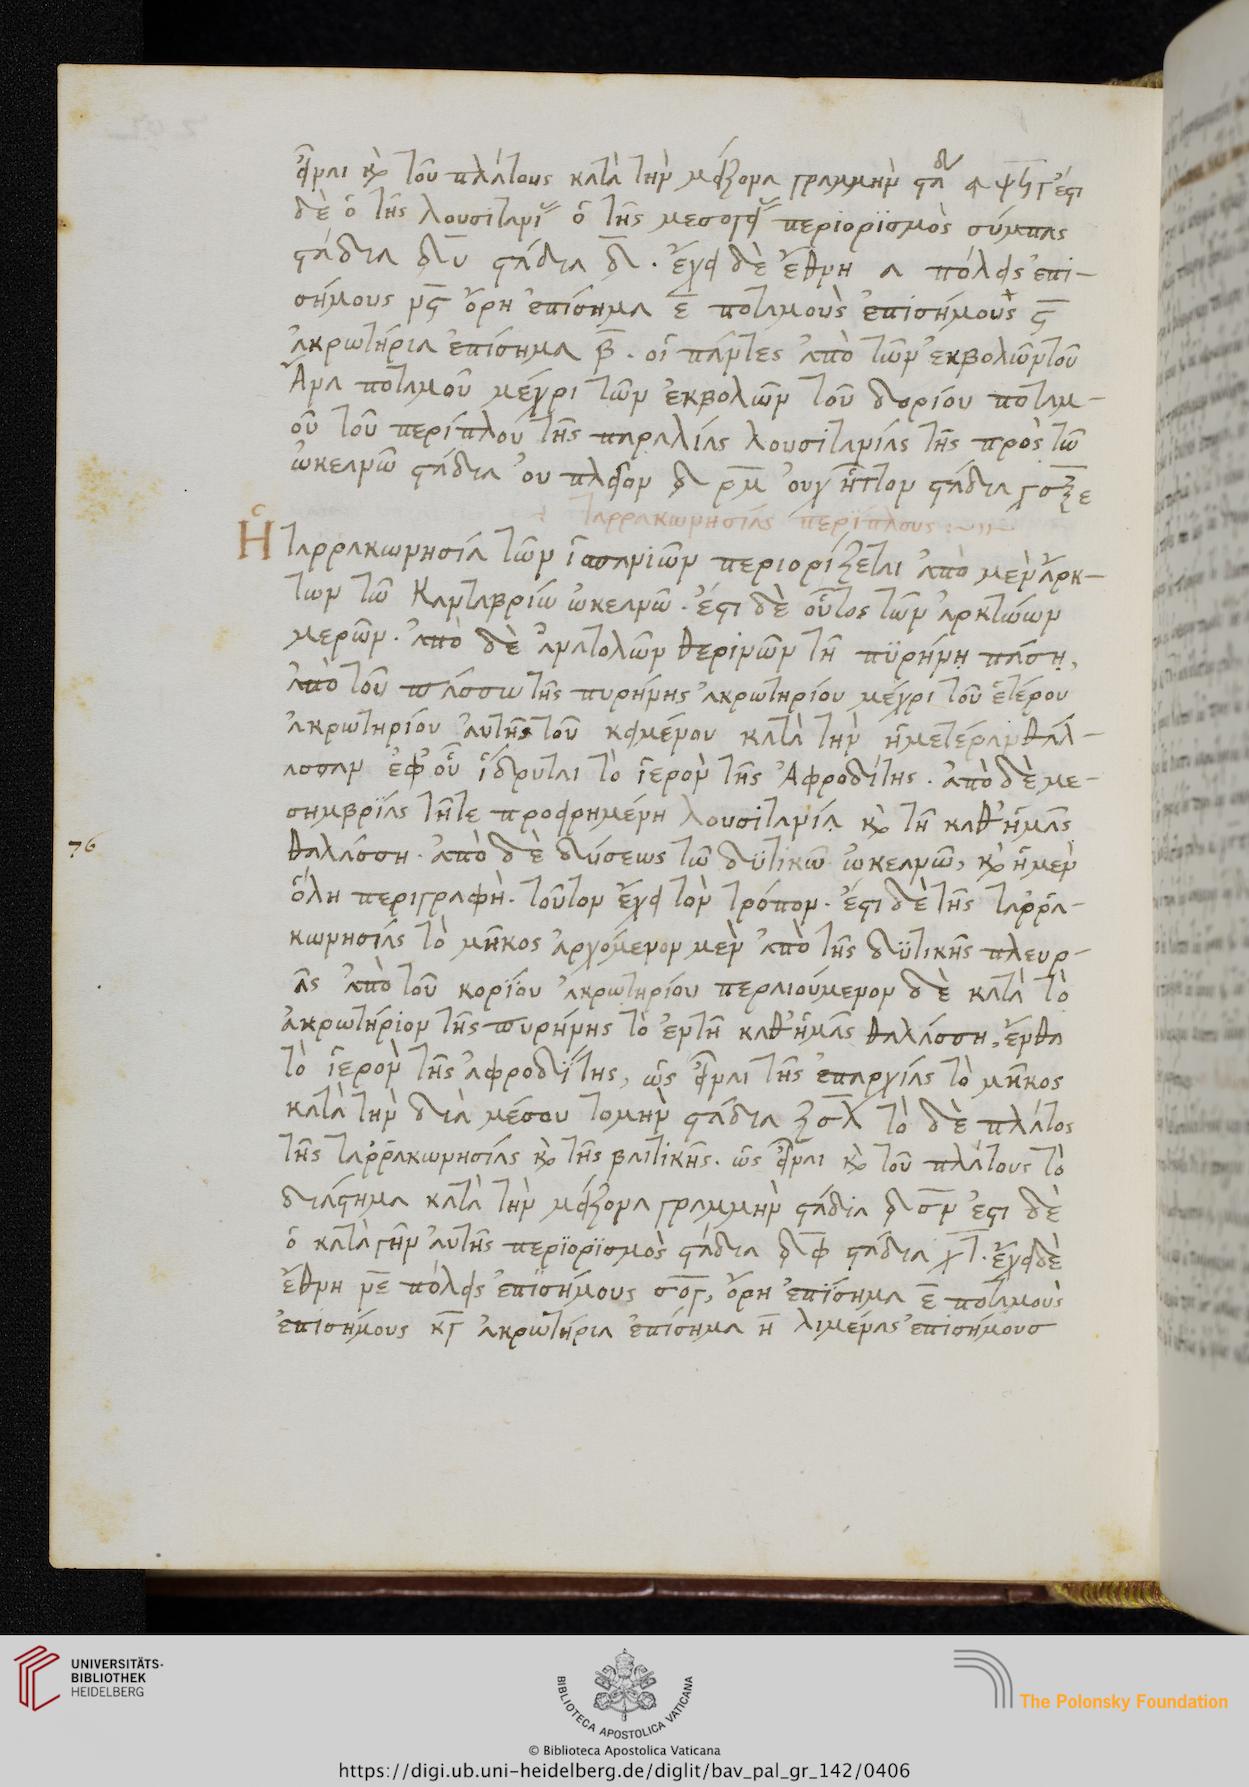 εἶναι καὶ τοῦ πλάτους κατὰ τὴν μείζονα γραμμὴν
δὲ ὁ τῆς λουσιτανι ὁ τῆς μεσογεί περιορϊσμὸς σύμπας
στάδια στάδια. ἔχει δὲ ἔθνη α πόλεις ἐπι-
σήμους νϛ ὄρη ἐπίσημα ε ποταμοὺς ἐπισήμους ϛ
ἀκρωτήρια ἐπίσημα β. οἱ πάντες ἀπὸ τῶν ἐκβολῶν τοῦ
Ἄνα ποταμοῦ μέχρι τῶν ἐκβολῶν τοῦ δορίου ποταμ-
οῦ τοῦ περίπλου τῆς παραλίας λουσιτανίας τῆς πρὸς τῶ
ὠκεανῶ στάδια οὐ πλεῖον ρμ οὐχ ἧττον στάδια
Ταρρακωνησίας περίπλους :~
Ἡ Ταρρακωνησία τῶν ἱσπανιῶν περιορίζεται ἀπὸ μὲν ἄρκ-
των τῶ Κανταβρίω ὠκεανῶ. ἔστι δὲ οὗτος τῶν ἀρκτώων
μερῶν. ἀπὸ δὲ ἀνατολῶν θερινῶν τῆ πϋρήνῃ πάσῃ,
ἀπὸ τοῦ τῆς πυρήνης ἀκρωτηρίου μέχρι τοῦ ἑτέρου
ἀκρωτηρίου αὐτῆς τοῦ κειμένου κατὰ τὴν ἡμετέραν θάλ-
ασσαν ἐφ' οὗ ἵδρυται τὸ ἱερὸν τῆς Ἀφροδίτης. ἀπὸ δὲ με-
σημβρϊας τῆτε προειρημένη λουσιτανίᾳ καὶ τῆ καθ' ἡμᾶς
76
θαλάσση. ἀπὸ δὲ δύσεως τῶ δϋτικῶ ὠκεανῶ, καὶ ἡ μὲν
ὅλη περιγραφὴ. τοῦτον ἔχει τὸν τρόπον. ἔστι δὲ τῆς ταῤῥα-
κωνησίας τὸ μῆκος ἀρχόμενον μὲν ἀπὸ τῆς δϋτικῆς πλευρ-
ᾶς ἀπὸ τοῦ κορϊου ἀκρωτηρίου περαιούμενον δὲ κατὰ τὸ
ἀκρωτήριον τῆς πυρήνης τὸ ἐν τῆ καθ' ἡμᾶς θαλάσση, ἔνθα
τὸ ἱερὸν τῆς ἀφροδϊτης, ὡς εἶναι τῆς ἐπαρχίας τὸ μῆκος
κατὰ τὴν διὰ μέσου τομὴν στάδια τὸ δὲ πλάτος
τῆς ταῤῥακωνησίας καὶ τῆς βαιτικῆς. ὡς εἶναι καὶ τοῦ πλάτους τὸ
διάστημα κατὰ τὴν μείζονα γραμμὴν στάδια ἐστι δὲ
ὁ κατὰ γῆν αὐτῆς περϊορϊσμὸς στάδια στάδια. ἔχει δὲ
ἔθνη νε πόλεις ἐπϊσήμους σογ, ὄρη ἐπϊσημα ε ποταμοὺς
ἐπισήμους κγ ἀκρωτήρια ἐπίσημα η λιμένας ἐπισήμους
UNIVERSITÄTS-
BIBLIOTHEK
HEIDELBERG
BIBLIOTECA APOSTOLICA VATICANA
The Polonsky Foundation
© Biblioteca Apostolica Vaticana
https://digi.ub.uni-heidelberg.de/diglit/bav_pal_gr_142/0406